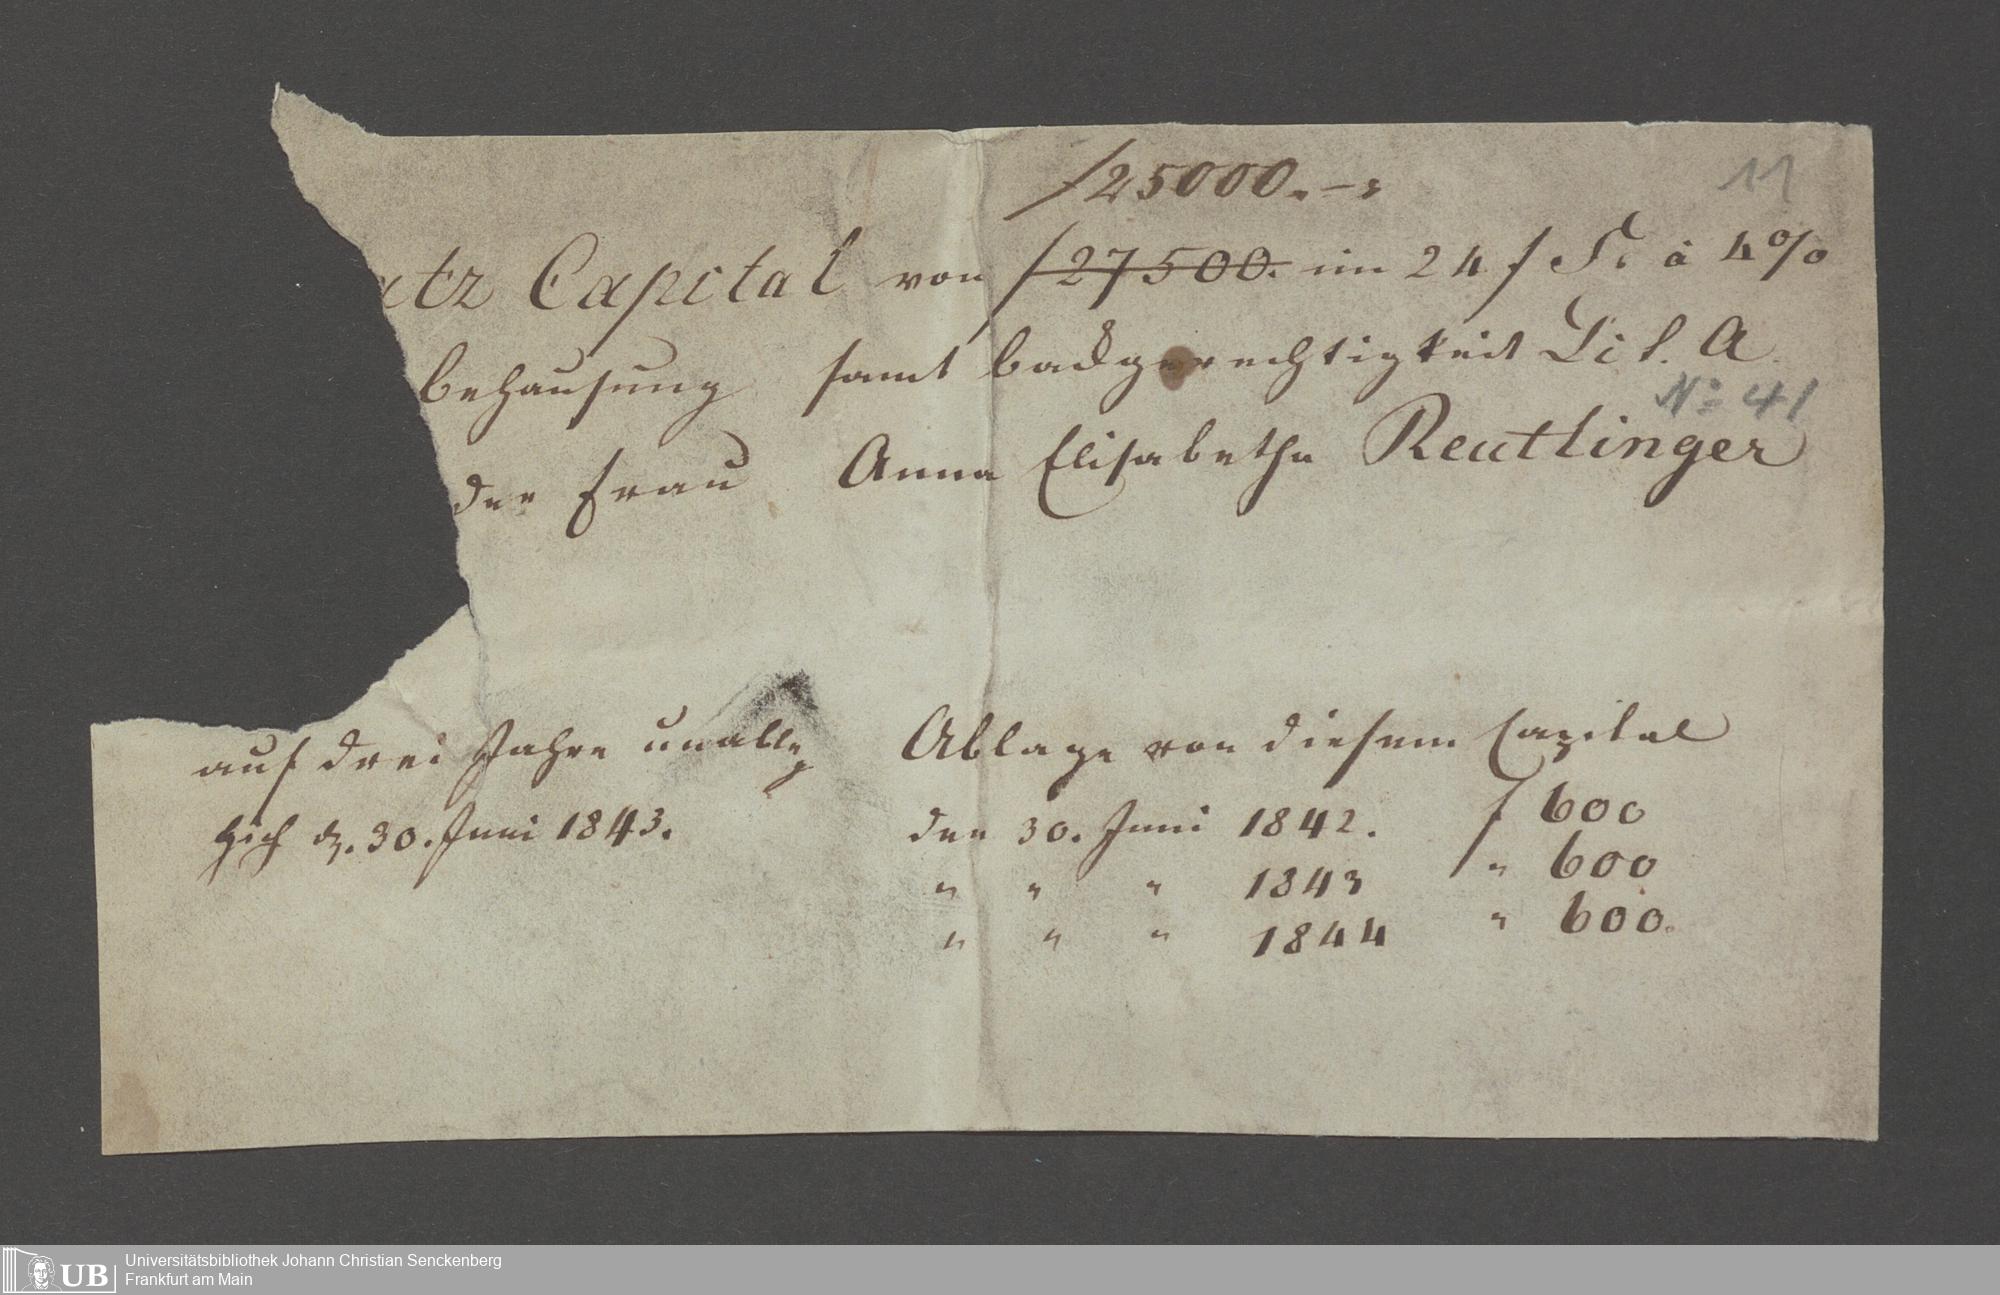 11
f 25000.–s
atz Capital von f 27500. im 24 f F. à 4%
behausung samt badgerechtigkeit Lit. A
No. 41
der Frau Anna Elisabetha Reutlinger
auf drei Jahre unableg Ablage von diesem Capital
lich d. 30. Juni 1843. den 30. Juni 1842. f 600
" " " 1843 " 600
" " " 1844 " 600.
UB
Universitätsbibliothek Johann Christian Senckenberg
Frankfurt am Main